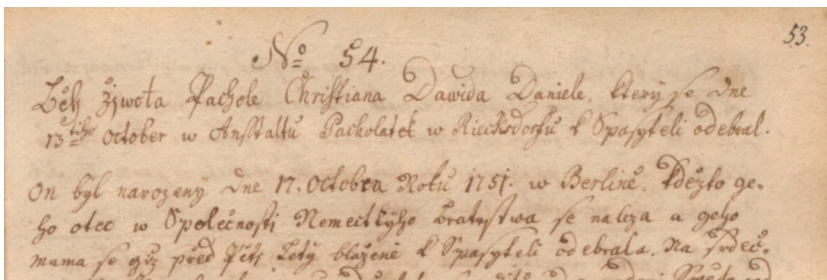 53.
No 54.
Běh žiwota Pachole Christiana Dawida Daniele, který se dne
13tiho October w Anstaltu Pacholatek w Riecksdorfu k Spasyteli odebral.
On byl narozený dne 17. Octobra Roku 1751. w Berlině. kdežto ge-
ho otec w Společnosti Nemeckýho bratrstwa se naleza a geho
mama se giž před Pěti Lety blaženě k Spasyteli odebrala. Na srdeč-